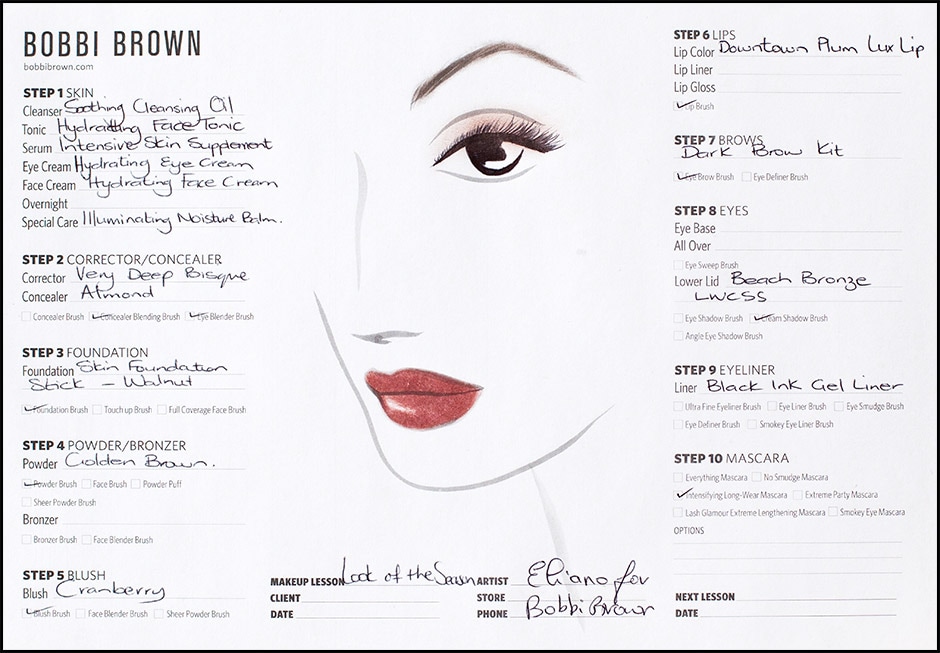 BOBBI BROWN
bobbibrown.com
STEP 1 SKIN
Cleanser Soothing Cleansing Oil
Tonic Hydratting Face Tonic
Serum Intensive Skin Supplement
Eye Cream Hydrating Eye Cream
Face Cream Hydrating Face Cream
Overnight
Special Care Illuminating Moisture Balm.
STEP 2 CORRECTOR/CONCEALER
Corrector Very Deep Bisque
Concealer Almond
Concealer Brush Concealer Blending Brush Eye Blender Brush
STEP 3 FOUNDATION
Foundation Skin Foundation
Stick – Walnut
Foundation Brush Touch up Brush Full Coverage Face Brush
STEP 4 POWDER/BRONZER
Powder Golden Brown.
Powder Brush Face Brush Powder Puff
Sheer Powder Brush
Bronzer
Bronzer Brush Face Blender Brush
STEP 5 BLUSH
Blush Cranberry
Blush Brush Face Blender Brush Sheer Powder Brush
MAKEUP LESSON Look of the Season
CLIENT
DATE
ARTIST Eliano for
STORE
PHONE Bobbi Brown
STEP 6 LIPS
Lip Color Downtown Plum Lux Lip
Lip Liner
Lip Gloss
Lip Brush
STEP 7 BROWS
Dark Brow Kit
Eye Brow Brush Eye Definer Brush
STEP 8 EYES
Eye Base
All Over
Eye Sweep Brush
Lower Lid Beach Bronze
LWCSS
Eye Shadow Brush Cream Shadow Brush
Angle Eye Shadow Brush
STEP 9 EYELINER
Liner Black Ink Gel Liner
Ultra Fine Eyeliner Brush Eye Liner Brush Eye Smudge Brush
Eye Definer Brush Smokey Eye Liner Brush
STEP 10 MASCARA
Everything Mascara No Smudge Mascara
Intensifying Long-Wear Mascara Extreme Party Mascara
Lash Glamour Extreme Lengthening Mascara Smokey Eye Mascara
OPTIONS
NEXT LESSON
DATE